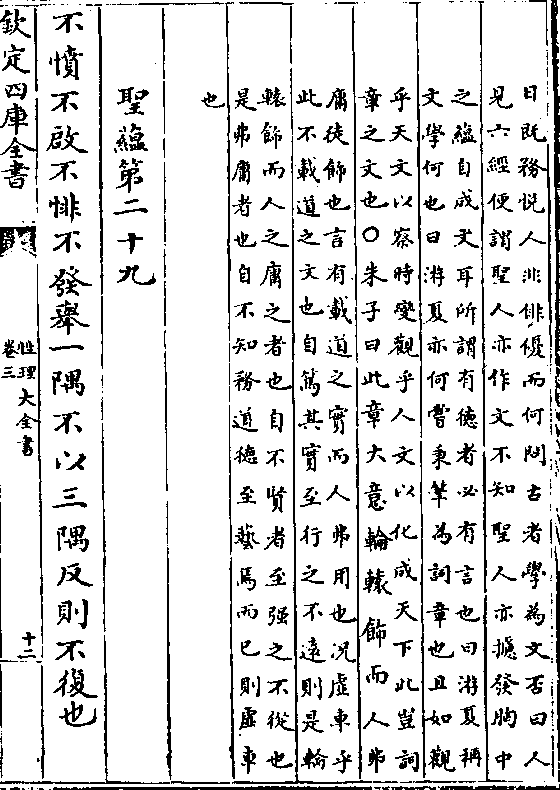 曰既務悦人非俳優而何問古者學為文否曰人
見六經便謂聖人亦作文不知聖人亦攄發胸中
之藴自成文耳所謂有德者必有言也曰游夏稱
文學何也曰游夏亦何嘗秉筆為詞章也且如觀
乎天文以察時變觀乎人文以化成天下此豈詞
章之文也○朱子曰此章大意輪轅飾而人弗
庸徒飾也言有載道之實而人弗用也况虚車乎
此不載道之文也自篤其實至行之不遠則是輪
轅飾而人之庸之者也自不賢者至强之不從也
是弗庸者也自不知務道德至藝焉而已則虚車
也
聖藴第二十九
不憤不啟不悱不發舉一隅不以三隅反則不復也
欽定四庫全書
性理大全書
卷三
十二